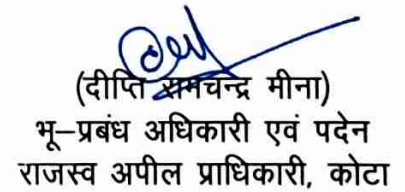 (दीप्ति रामचन्द्र मीना)
भू–प्रबंध अधिकारी एवं पदेन
राजस्व अपील प्राधिकारी, कोटा